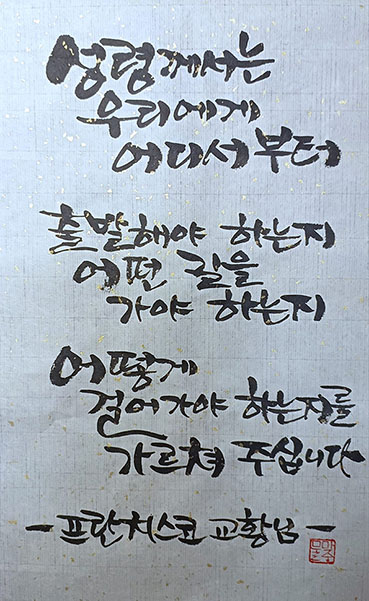 성령께서는
우리에게
어디서부터
출발해야 하는지
어떤 길을
가야 하는지
어떻게
걸어가야 하는지를
가르쳐 주십니다
- 프란치스코 교황님 -